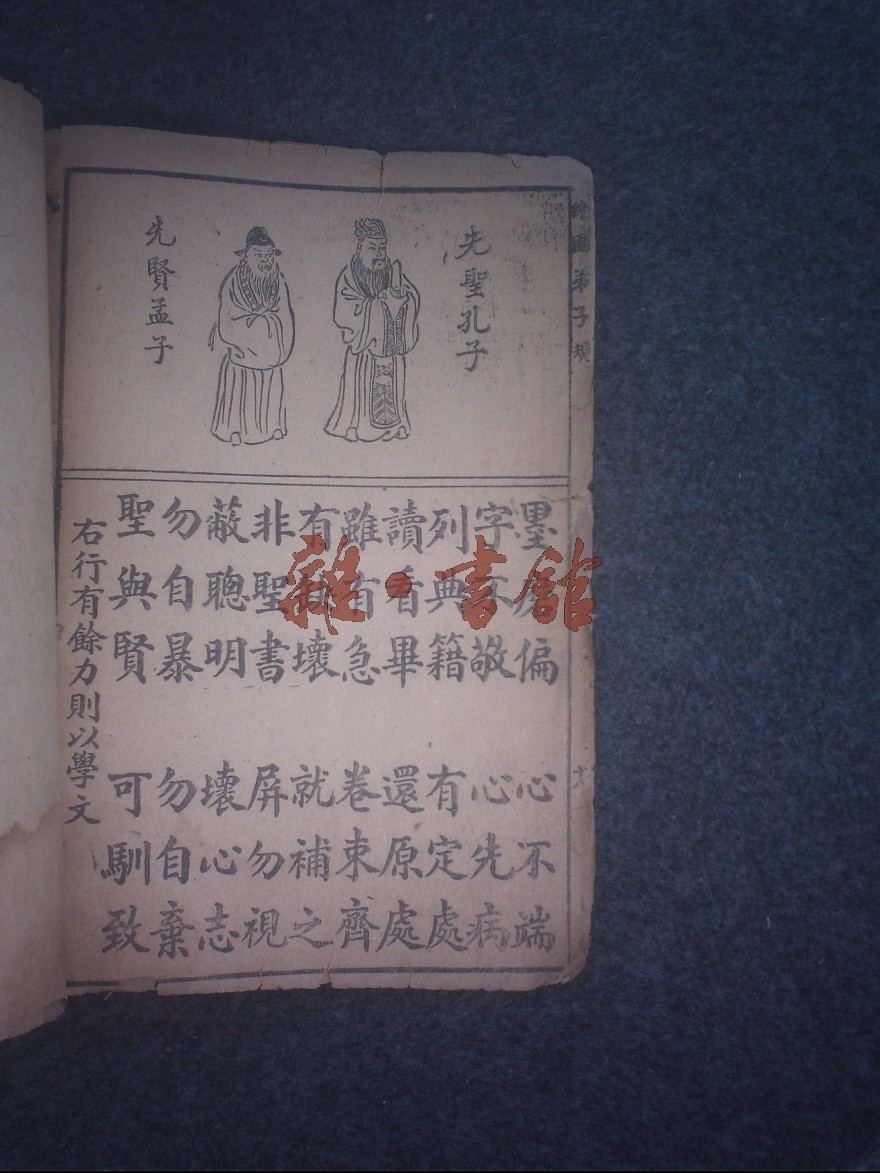 繪圖弟子規
先聖孔子
先賢孟子
墨磨偏 心不端
字不敬 心先病
列典籍 有定處
讀看畢 還原處
雖有急 卷束齊
有缺壞 就補之
非聖書 屏勿視
蔽聰明 壞心志
勿自暴 勿自棄
聖與賢 可馴致
右行有餘力則以學文
雜·書館